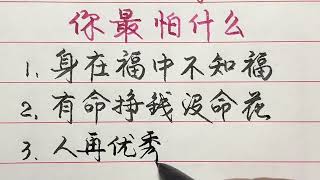 你最怕什么
1. 身在福中不知福
2. 有命挣钱没命花
3. 人再优秀